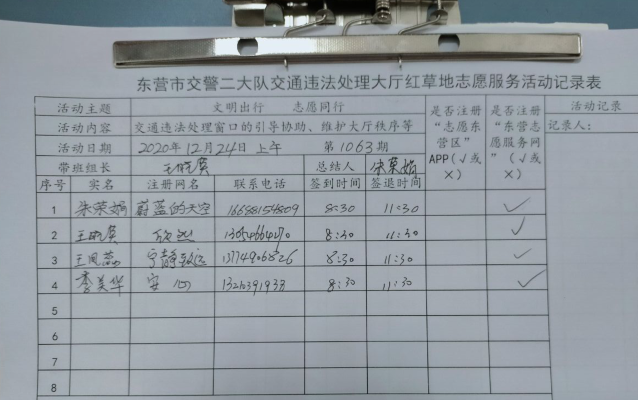 东营市交警二大队交通违法处理大厅红草地志愿服务活动记录表
活动主题 文明出行 志愿同行 是否注册“志愿东营区”APP(√或×) 是否注册“东营志愿服务网”(√或×) 活动记录
活动内容 交通违法处理窗口的引导协助、维护大厅秩序等 记录人:
活动日期 2020年12月24日上午 第1063期
带班组长 王晓霞 总结人 朱荣娟
序号 实名 注册网名 联系电话 签到时间 签退时间
1 朱荣娟 蔚蓝的天空 8:30 11:30 √
2 王晓霞 8:30 11:30 √
3 王凤蕊 宁静致远 13774906826 8:30 11:30 √
4 李美华 安心 8:30 11:30 √
5
6
7
8